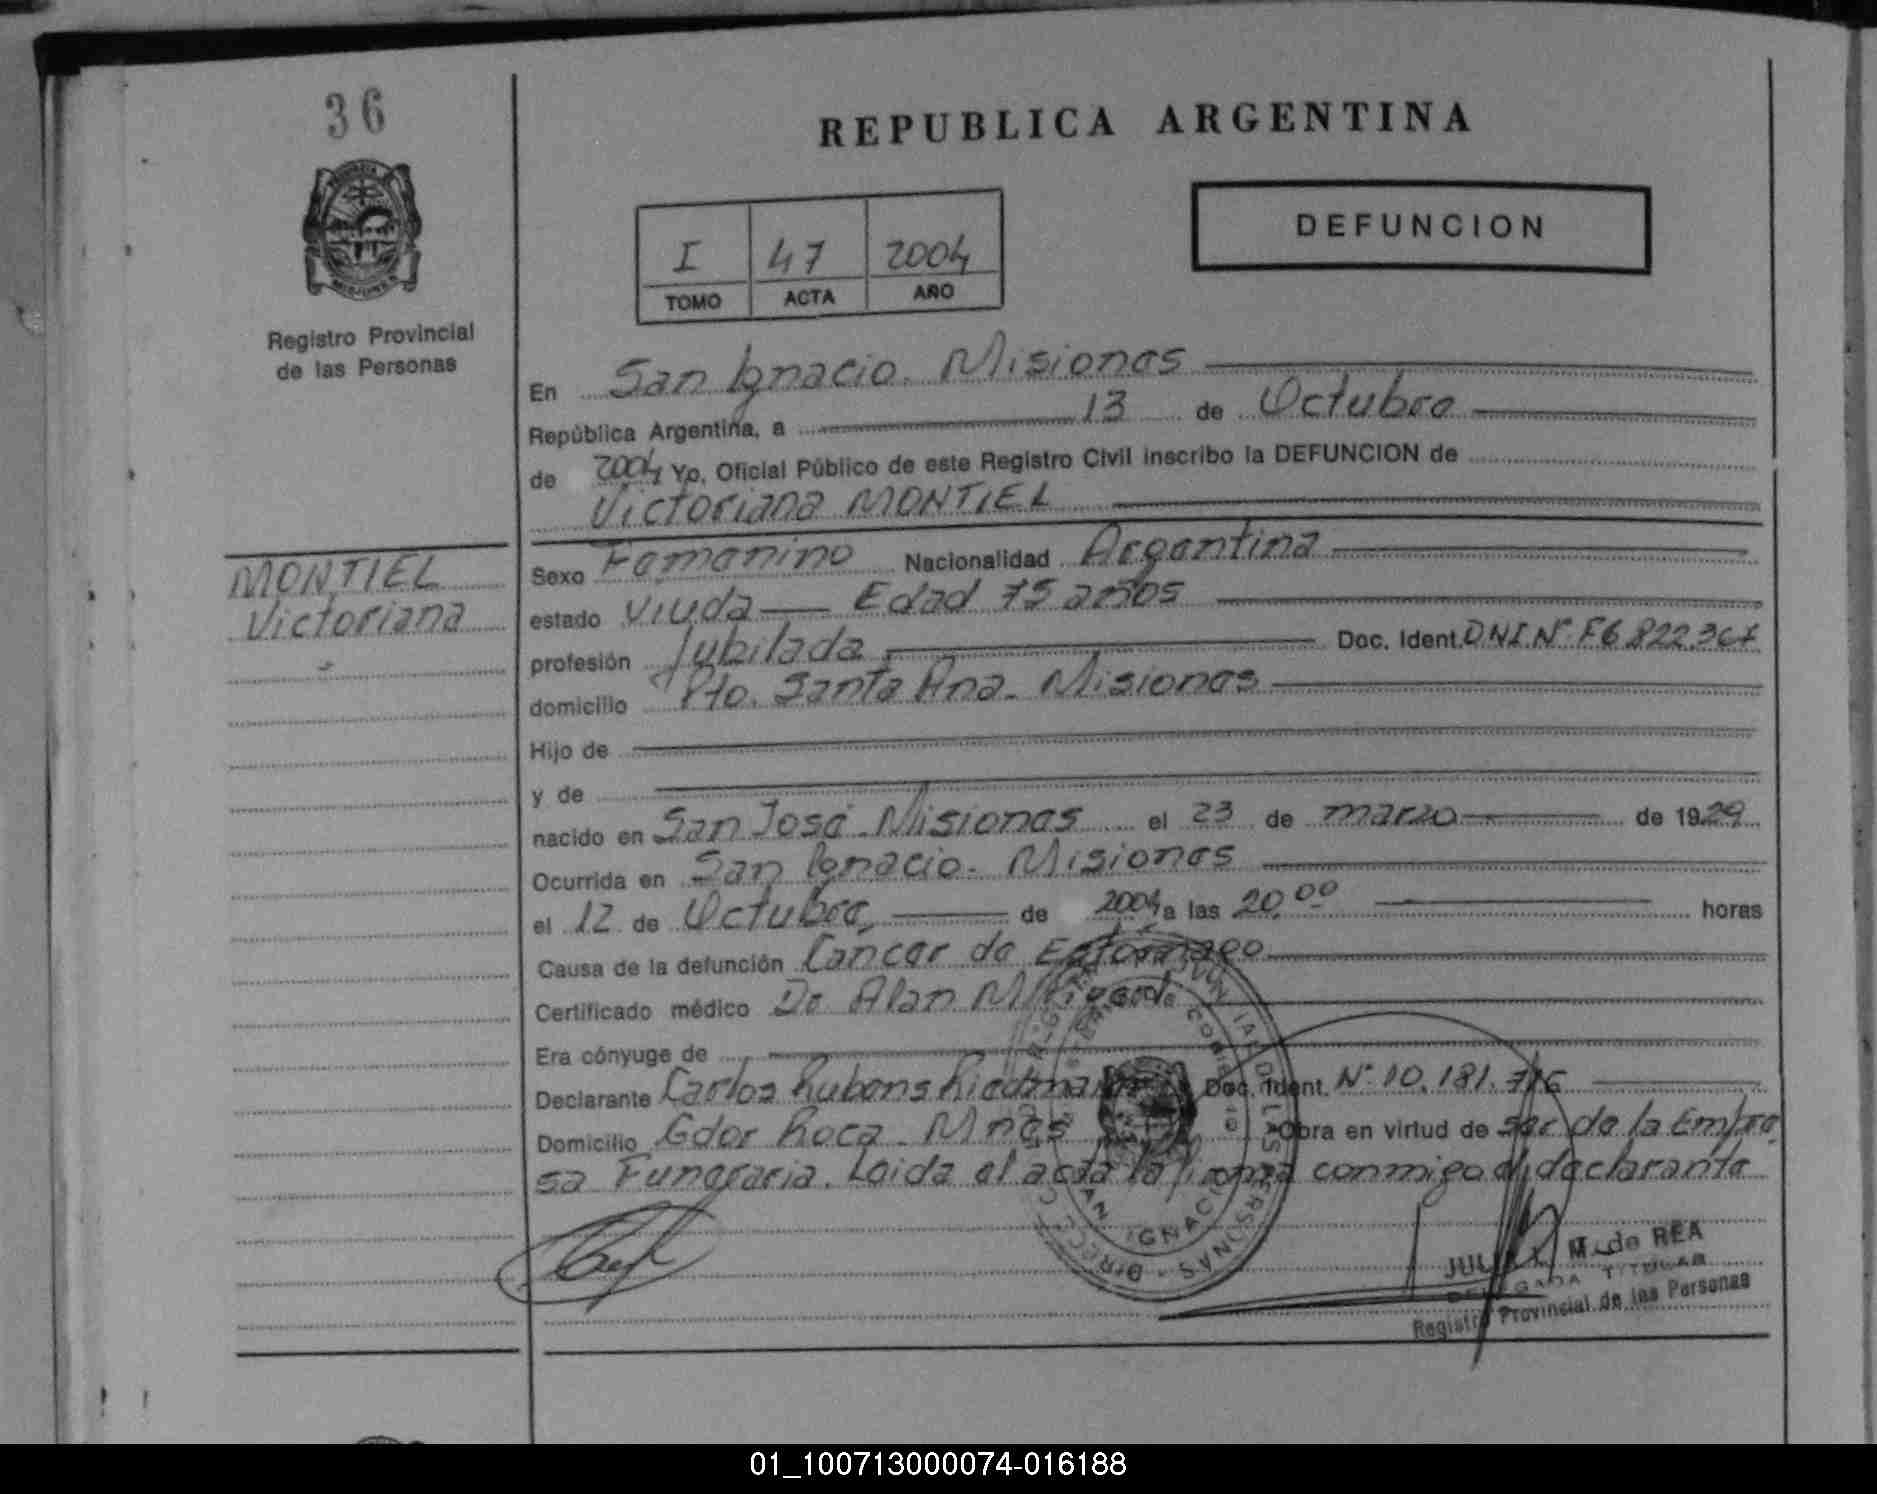 36
REPUBLICA ARGENTINA
DEFUNCION
I 47 2004
TOMO ACTA AÑO
Registro Provincial
de las Personas
En San Ignacio. Misiones
República Argentina, a 13 de Octubre
de 2004 Yo, Oficial Público de este Registro Civil inscribo la DEFUNCION de
Victoriana MONTIEL
MONTIEL
Victoriana
Sexo Femenino Nacionalidad Argentina
estado Viuda Edad 75 años
profesión Jubilada Doc. Ident. D.N.I. Nº F6.822.367
domicilio Pto. Santa Ana. Misiones
Hijo de
y de
nacido en San José. Misiones el 23 de marzo de 1929
Ocurrida en San Ignacio. Misiones
el 12 de Octubre, de 2004 a las 20.00 horas
Causa de la defunción Cáncer de Estómago
Certificado médico Dr Alan
Era cónyuge de
Declarante Carlos Rubens Doc. Ident. Nº 10.181.716
Domicilio Gdor Roca. Mnes Obra en virtud de ser de la Empre
sa Funeraria. Leida el acta la firma conmigo el declarante
M. de REA
DELEGADA TITULAR
Registro Provincial de las Personas
SAN IGNACIO
01_100713000074-016188